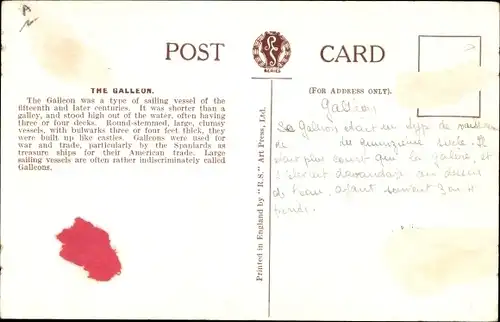 POST CARD
SERIES
THE GALLEON.
The Galleon was a type of sailing vessel of the
fifteenth and later centuries. It was shorter than a
galley, and stood high out of the water, often having
three or four decks. Round-stemmed, large, clumsy
vessels, with bulwarks three or four feet thick, they
were built up like castles. Galleons were used for
war and trade, particularly by the Spaniards as
treasure ships for their American trade. Large
sailing vessels are often rather indiscriminately called
Galleons.
Printed in England by "R.S." Art Press, Ltd.
(FOR ADDRESS ONLY).
Galléon
Galléon étant un type de
de siècle. Il
était plus court que la galère, et
s'élevait davantage au dessus
de l'eau, ayant souvent 3 ou 4
ponts.